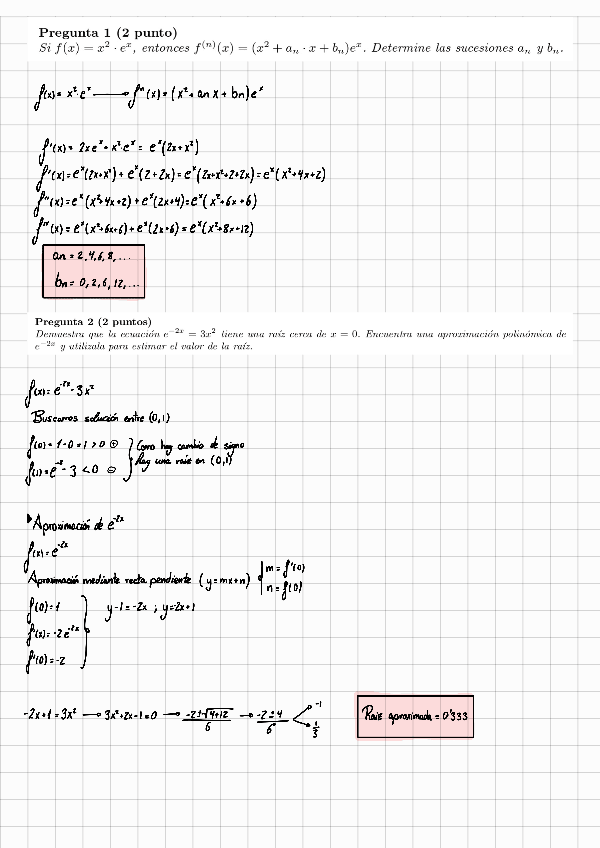 Pregunta 1 (2 punto)
Si f(x) = x² · eˣ, entonces f⁽ⁿ⁾(x) = (x² + aₙ · x + bₙ)eˣ. Determine las sucesiones aₙ y bₙ.
f(x) = x²·eˣ → fⁿ(x) = (x² + an x + bn)eˣ
f'(x) = 2xeˣ + x²·eˣ = eˣ(2x+x²)
f''(x) = eˣ(2x+x²) + eˣ(2+2x) = eˣ(2x+x²+2+2x) = eˣ(x²+4x+2)
f'''(x) = eˣ(x²+4x+2) + eˣ(2x+4) = eˣ(x²+6x+6)
f''''(x) = eˣ(x²+6x+6) + eˣ(2x+6) = eˣ(x²+8x+12)
an = 2,4,6,8,...
bn = 0,2,6,12,...
Pregunta 2 (2 puntos)
Demuestra que la ecuación e⁻²ˣ = 3x² tiene una raíz cerca de x = 0. Encuentra una aproximación polinómica de
e⁻²ˣ y utilízala para estimar el valor de la raíz.
f(x) = e⁻²ˣ - 3x²
Buscamos solución entre (0,1)
f(0) = 1-0 = 1 > 0 ⊕ } Como hay cambio de signo
f(1) = e⁻² - 3 < 0 ⊖ hay una raiz en (0,1)
Aproximación de e⁻²ˣ
f(x) = e⁻²ˣ
Aproximación mediante recta pendiente (y=mx+n) | m = f'(0)
n = f(0)
f(0) = 1 } y-1 = -2x ; y=2x+1
f'(x) = -2e⁻²ˣ
f'(0) = -2
-2x+1 = 3x² → 3x²+2x-1=0 → (-2±√(4+12))/6 → (-2±4)/6 → -1
1/3
Raiz aproximada = 0'333